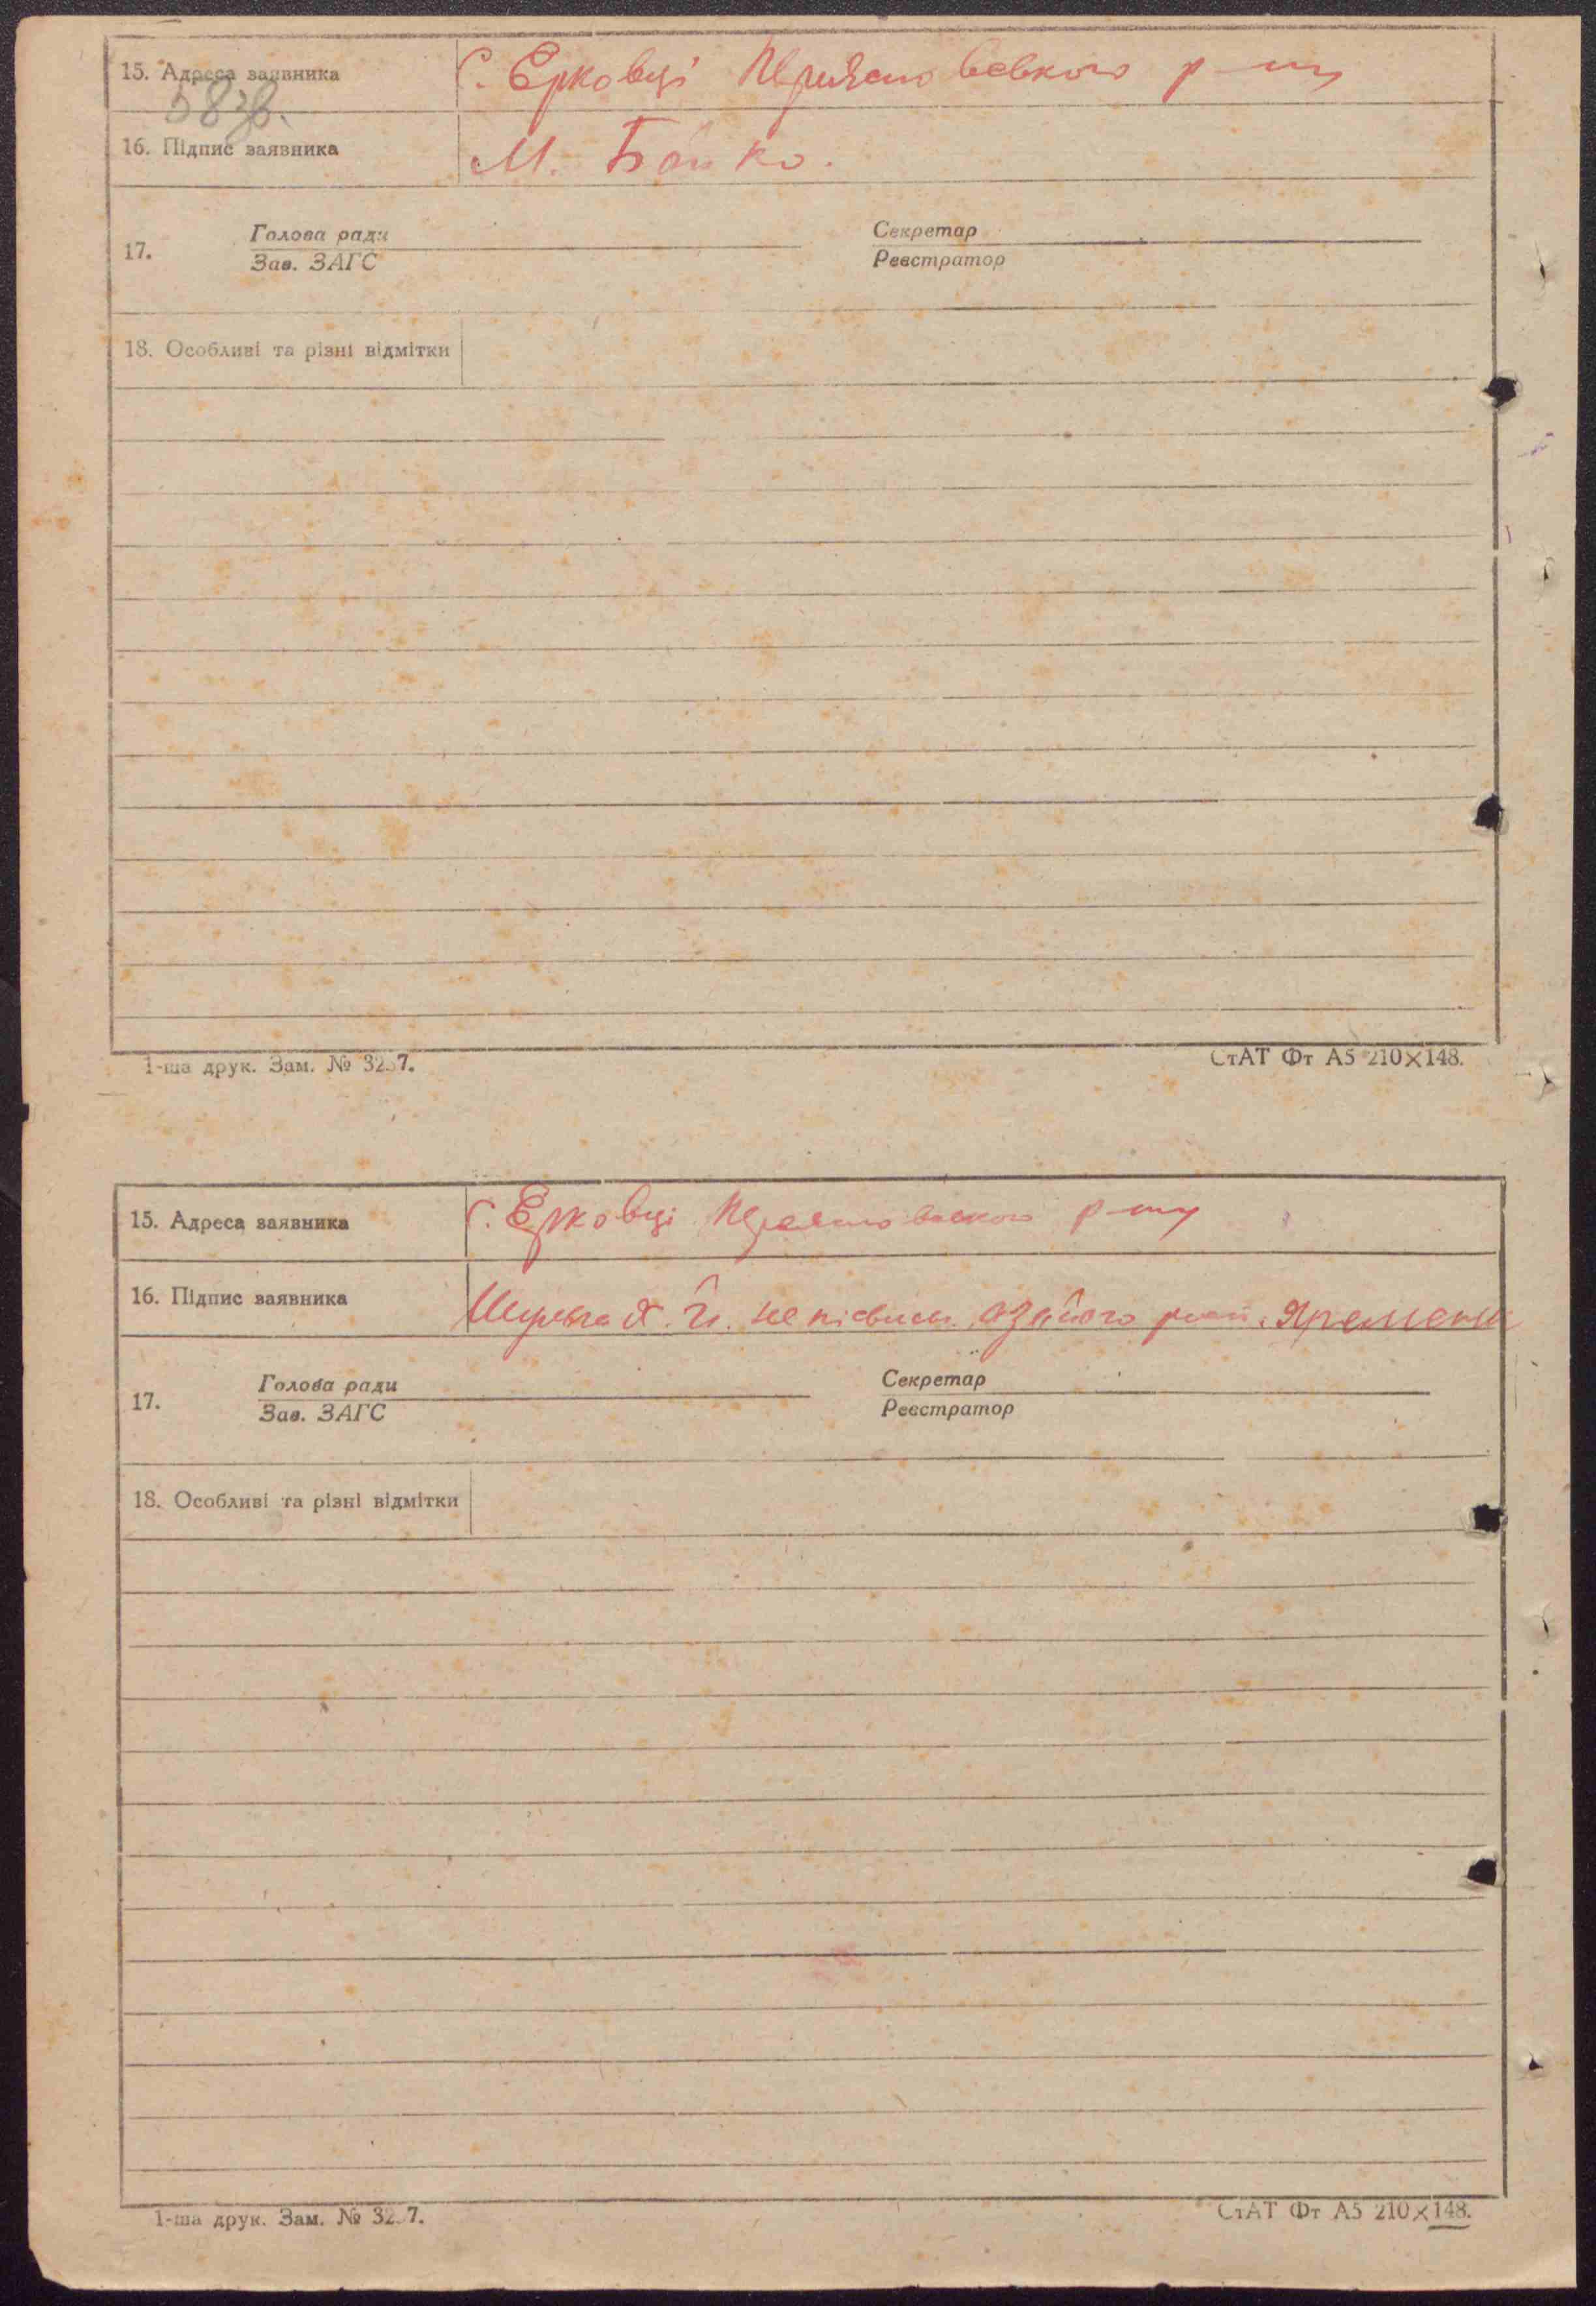 15. Адреса заявника С. Ерковці Переяславського р-ну
583в.
16. Підпис заявника М. Бойко.
17. Голова ради Секретар
Зав. ЗАГС Реєстратор
18. Особливі та різні відмітки
1-ша друк. Зам. № 32 7. СтАТ Фт А5 210×148.
15. Адреса заявника С. Ерковці р-ну
16. Підпис заявника не Яременко
17. Голова ради Секретар
Зав. ЗАГС Реєстратор
18. Особливі та різні відмітки
1-ша друк. Зам. № 32 7. СтАТ Фт А5 210×148.